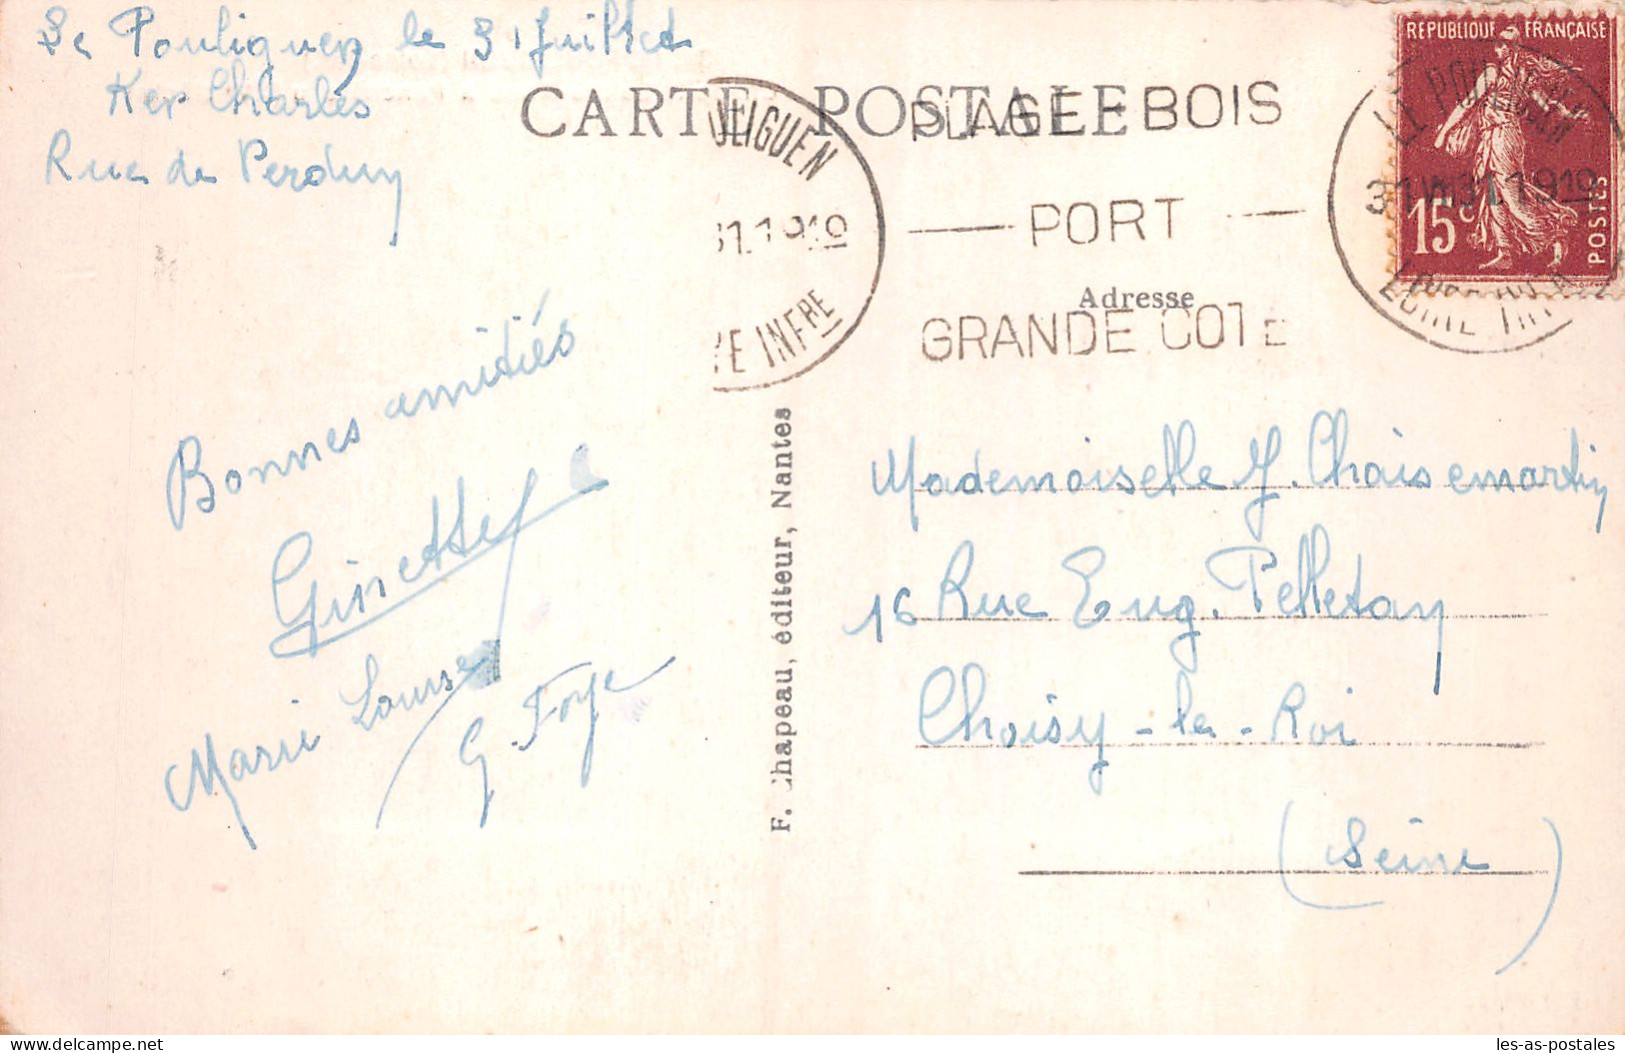 Le Pouliguen le 31 Juillet
Ker Charles
Rue de Perduy
CARTE POSTALE
OULIGUEN
31.1 19 10
RE INFRE
PLAGE - BOIS
PORT
GRANDE COTE
REPUBLIQUE FRANÇAISE
15c
POSTES
LE POULIGUEN
31 VII 31 19 10
LOIRE INF
Adresse
Bonnes amitiés
Ginette
Marie Louise
G. Foye
F. Chapeau, éditeur, Nantes
Mademoiselle J. Chaisemartin
16 Rue Eug. Pelletan
Choisy-le-Roi
(Seine)
les-as-postales
delcampe.net